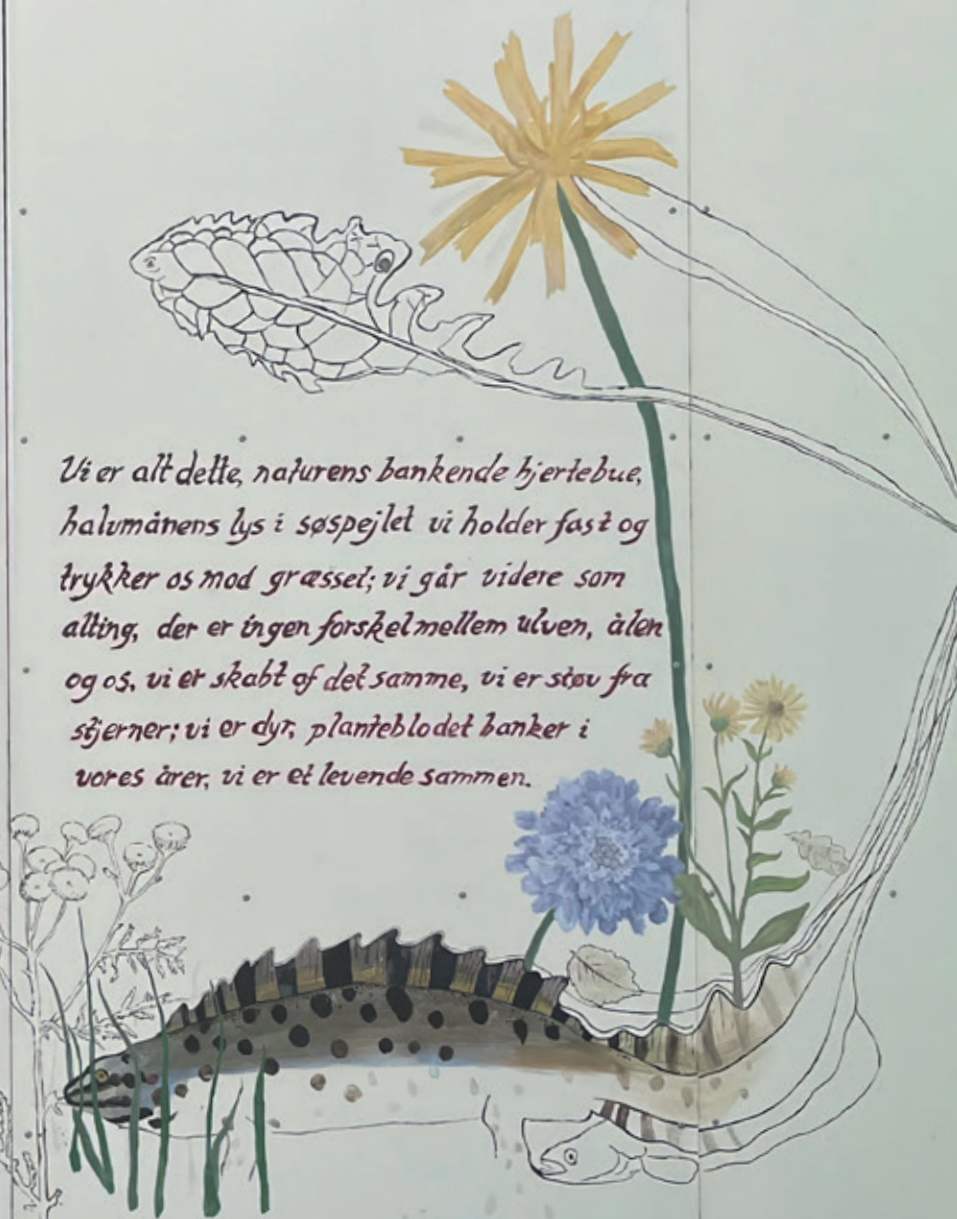 Vi er alt dette, naturens bankende hjertebue,
halvmånens lys i søspejlet vi holder fast og
trykker os mod græsset; vi går videre som
alting, der er ingen forskel mellem ulven, ålen
og os, vi er skabt af det samme, vi er støv fra
stjerner; vi er dyr, planteblodet banker i
vores årer, vi er et levende sammen.